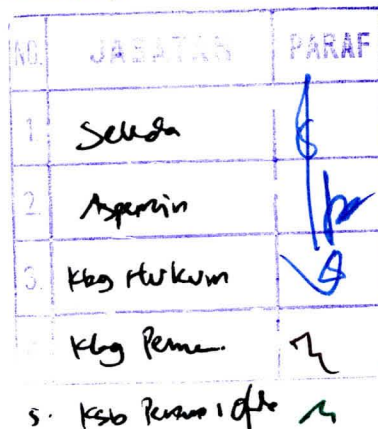 NO. JABATAN PARAF
1. Sekda
2. Aspemin
3. Kbg Hukum
Kbg Peme.
5. Ksb